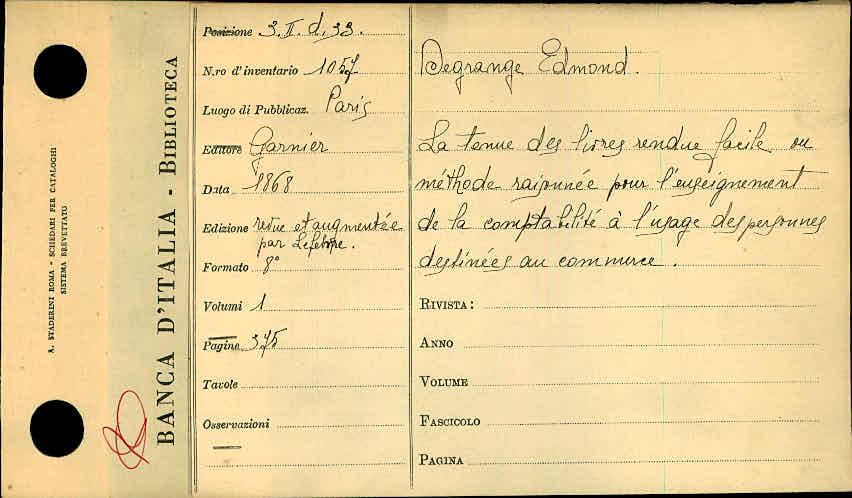 A. STADERINI ROMA - SCHEDARI PER CATALOGHI
SISTEMA BREVETTATO
BANCA D'ITALIA - BIBLIOTECA
Posizione 3. II. d. 33.
N.ro d'inventario 1057
Luogo di Pubblicaz. Paris
Editore Garnier
Data 1868
Edizione revue et augmentée
par Lefebvre.
Formato 8°
Volumi 1
Pagine 375
Tavole
Osservazioni
Degrange Edmond.
La tenue des livres rendue facile ou
méthode raisonnée pour l'enseignement
de la comptabilité à l'usage des personnes
destinées au commerce.
RIVISTA:
ANNO
VOLUME
FASCICOLO
PAGINA